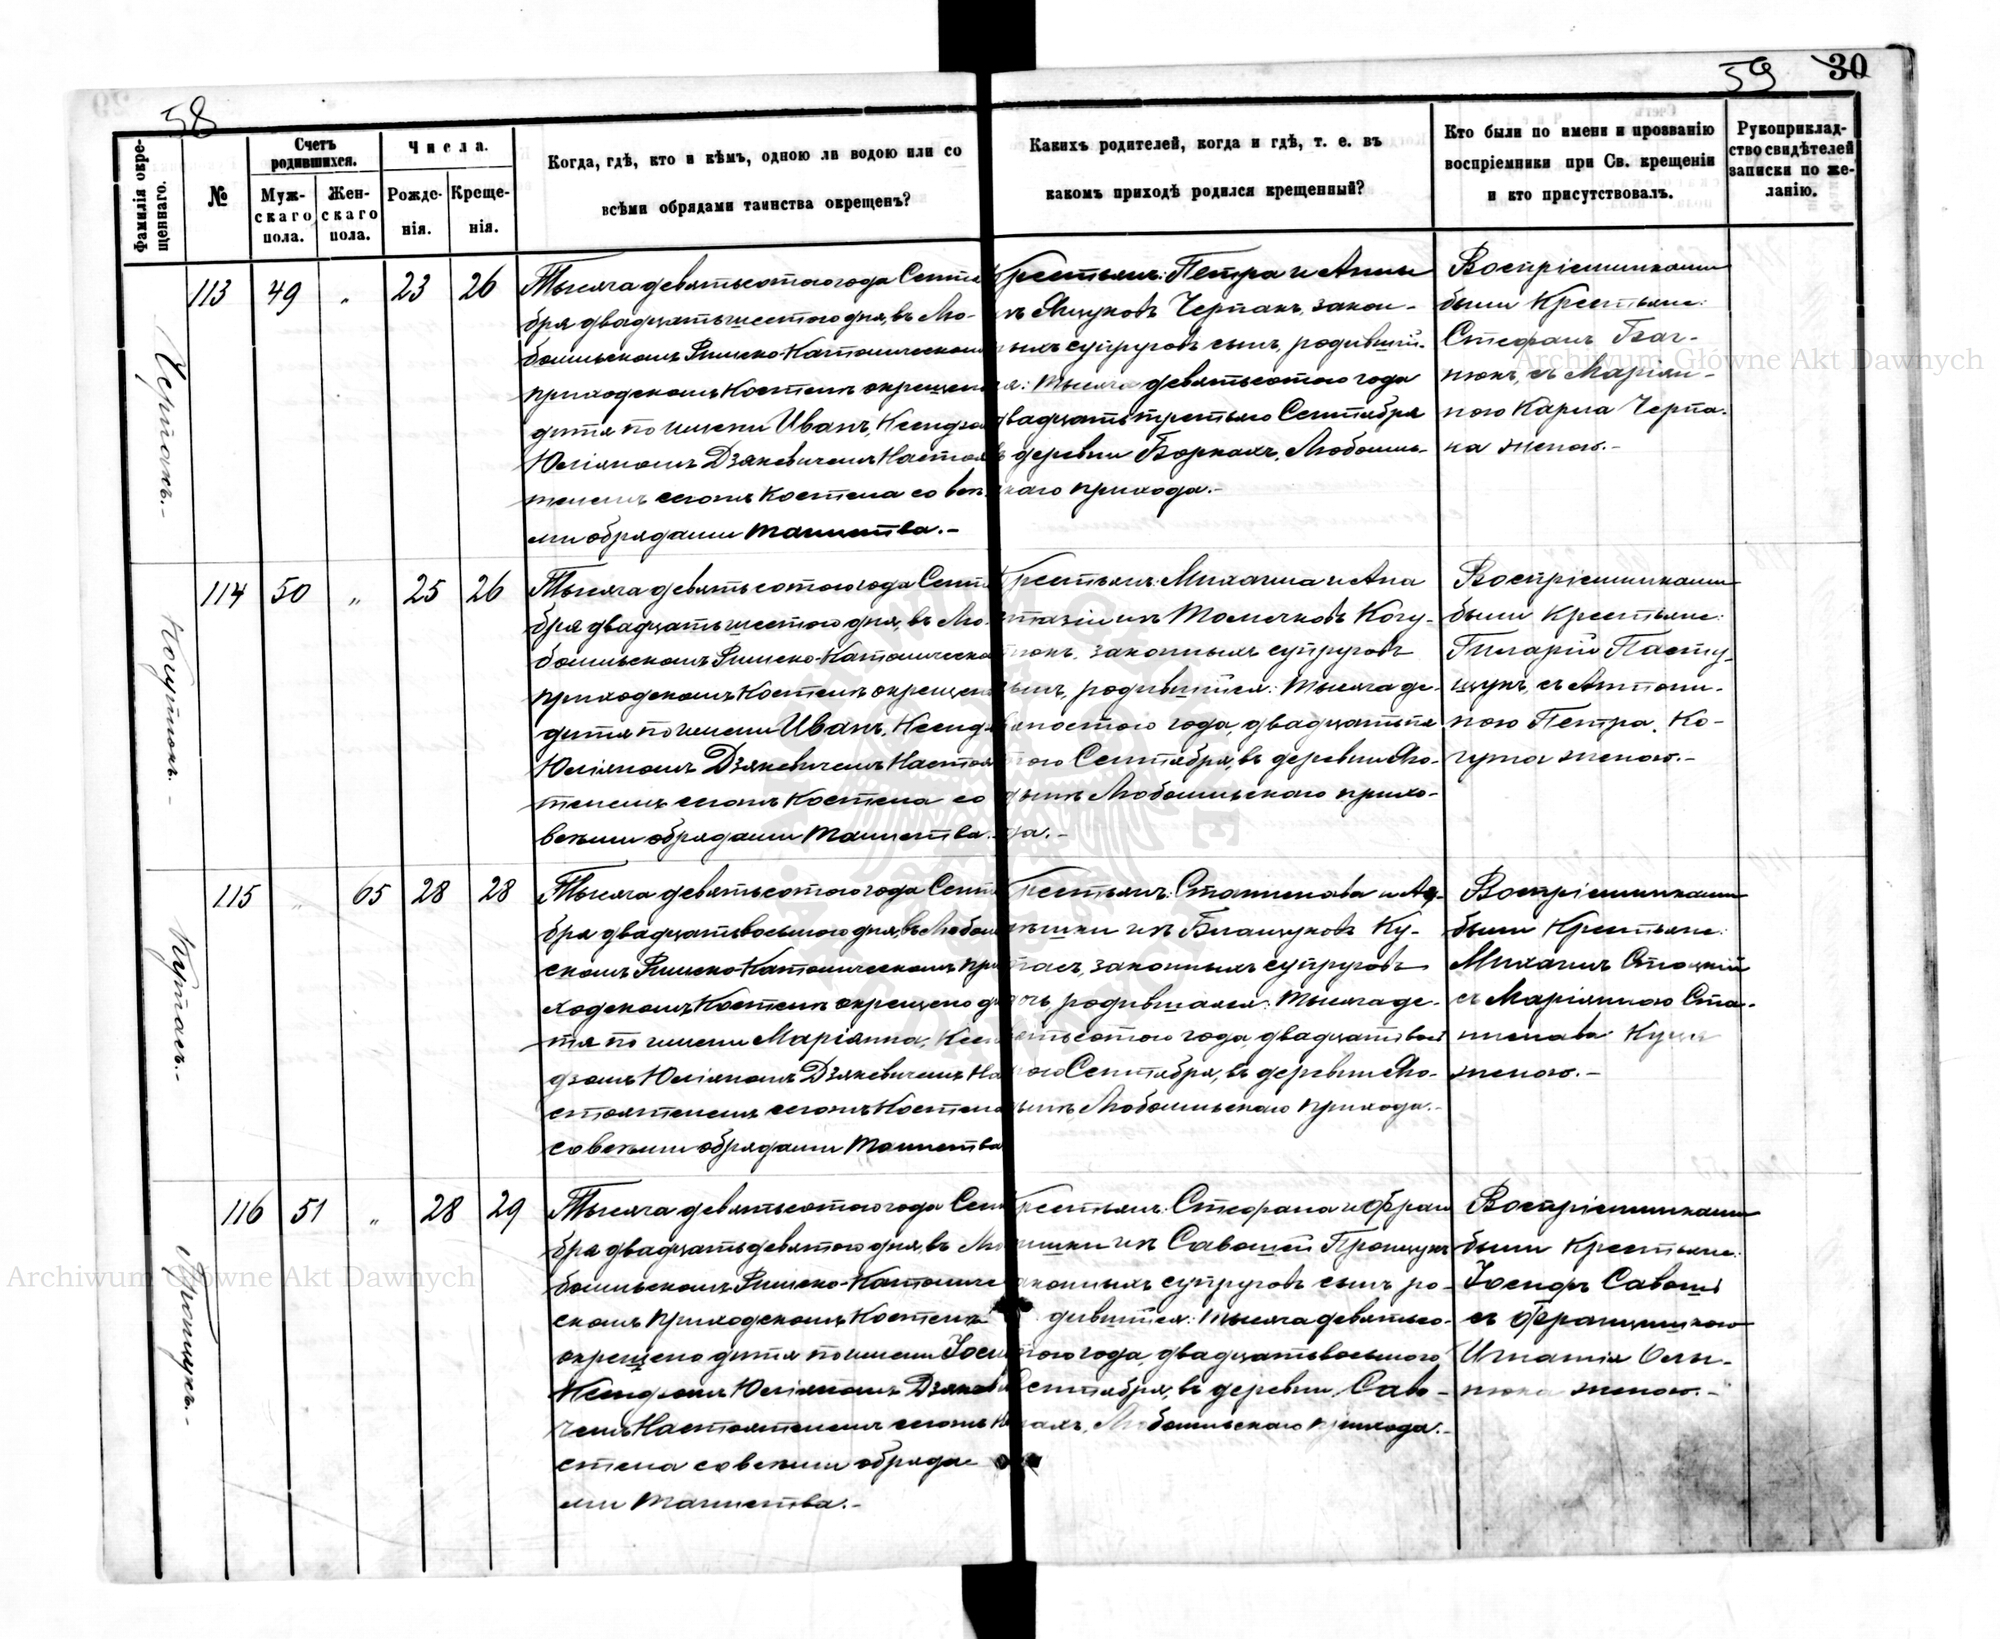 58
59 30
Фамилія окре-
щеннаго.
№
Счетъ
родившихся.
Муж-
скаго
пола.
Жен-
скаго
пола.
Числа.
Рожде-
нія.
Креще-
нія.
Когда, гдѣ, кто и кѣмъ, одною ли водою или со
всѣми обрядами таинства окрещенъ?
Какихъ родителей, когда и гдѣ, т. е. въ
какомъ приходѣ родился крещенный?
Кто были по имени и прозванію
воспріемники при Св. крещеніи
и кто присутствовалъ.
Рукоприклад-
ство свидѣтелей
записки по же-
ланію.
Черпакъ.-
113 49 „ 23 26
Тысяча девятьсотого года Сентя
бря двадцать шестого дня, въ Лю-
бомльскомъ Римско-Католическомъ
приходскомъ Костелѣ окрещено
дитя по имени Иванъ, Ксендзомъ
Юліяномъ Дзякевичемъ Настоя
телемъ сего Костела со всѣ
ми обрядами таинства.-
Крестьянъ: Петра и Анны
изъ Яцуковъ Черпакъ, закон-
ныхъ супруговъ сынъ, родивший-
ся: тысяча девятьсотого года
двадцать третьяго Сентября
въ деревни Боркахъ, Любомль-
скаго прихода.-
Воспріемниками
были Крестьяне:
Стефанъ Баг-
нюкъ, съ Маріян-
ною Карла Черпа-
ка женою.-
Когутюкъ.-
114 50 „ 25 26
Тысяча девятьсотого года Сентя
бря двадцать шестого дня, въ Лю-
бомльскомъ Римско-Католическо
приходскомъ Костелѣ окрещено
дитя по имени Иванъ, Ксендз
Юліяномъ Дзякевичемъ Настоя
телемъ сего Костела со
всѣми обрядами таинства.-
Крестьянъ: Михаила и Ана
стазіи изъ Томечковъ Когу-
тюкъ, законныхъ супруговъ
сынъ, родившийся: тысяча де-
вятьсотого года, двадцать пя
того Сентября, въ деревни
Любомльскаго прихо-
да.-
Воспріемниками
были Крестьяне:
Гиларій Пасту-
щукъ, съ Антони-
ною Петра Ко-
гута женою.-
Купась.-
115 „ 65 28 28
Тысяча девятьсотого года Сентя
бря двадцать восьмого дня, въ Любомль
скомъ Римско-Католическомъ при
ходскомъ Костелѣ окрещено ди
тя по имени Маріянна, Ксен
дзомъ Юліяномъ Дзякевичемъ На
стоятелемъ сего Костела
со всѣми обрядами таинства
Крестьянъ: Станислава и Аг-
нѣшки изъ Ку-
пась, законныхъ супруговъ
дочь родившаяся: тысяча де-
вятьсотого года, двадцать вось
мого Сентября, въ деревни
Любомльскаго прихода.-
Воспріемниками
были Крестьяне:
Михаилъ
съ Маріянною Ста-
нислава
женою.-
116 51 „ 28 29
Тысяча девятьсотого года Сентя
бря двадцать девятого дня, въ Лю
бомльскомъ Римско-Католиче
скомъ приходскомъ Костелѣ
окрещено дитя по имени Іосифъ
Ксендзомъ Юліяномъ Дзякеви
чемъ Настоятелемъ сего Ко
стела со всѣми обряда-
ми таинства.-
Крестьянъ: Стефана и Фран
цишки изъ Савошей
законныхъ супруговъ сынъ, ро-
дившийся: тысяча девятьсо-
того года, двадцать восьмого
Сентября, въ деревни Саво-
шахъ, Любомльскаго прихода.-
Воспріемниками
были Крестьяне:
Іосифъ Савошъ
съ Францишкою
Игнатія
женою.-
Archiwum Główne Akt Dawnych
Archiwum Główne Akt Dawnych